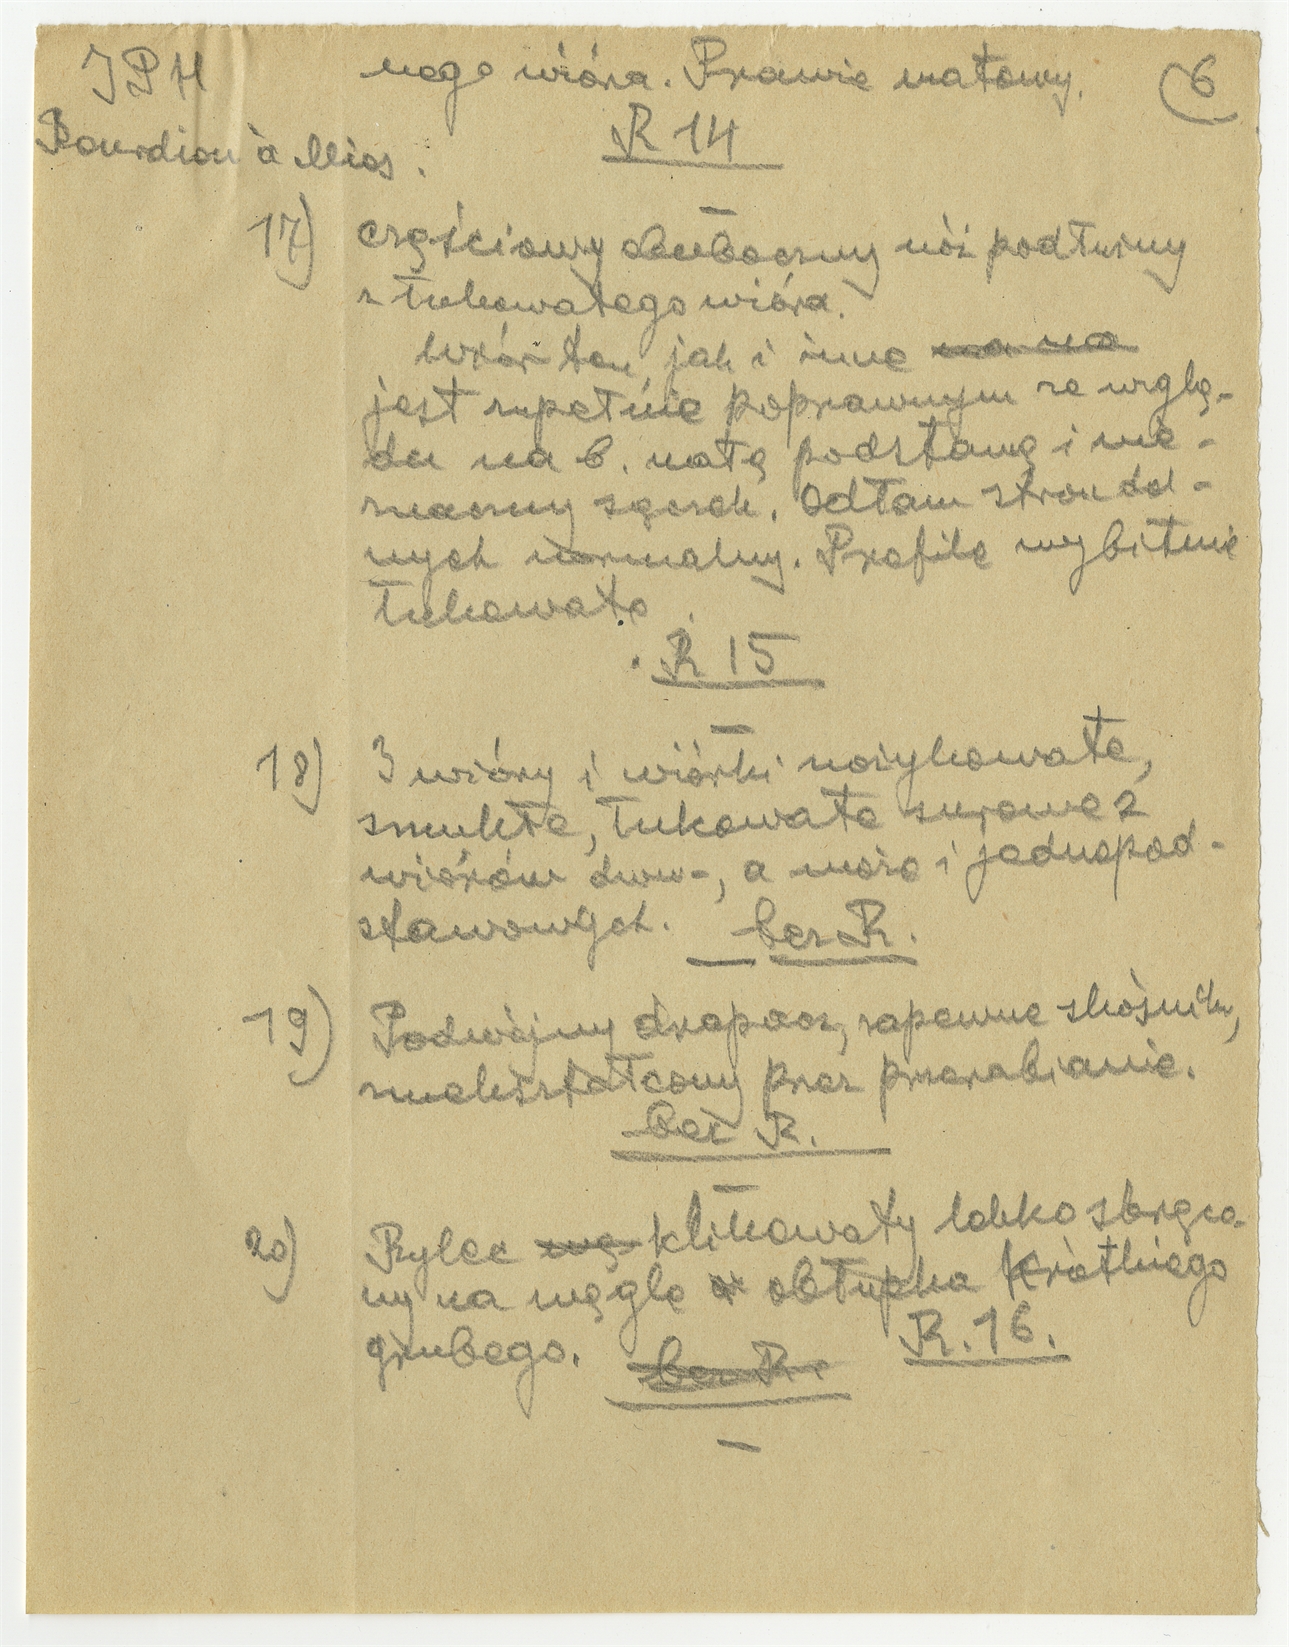 JPH
nego wióra. Prawie matowy.
6
R 14
Bourdiou à Mios.
17) częściowy obuboczny nóż podłużny
z łukowatego wióra.
Wzór ten jak i inne ~~na na~~
jest zupełnie poprawnym ze wzglę-
du na b. małą podstawę i nie-
znaczny sęczek. Odłam stron dol-
nych normalny. Profile wybitnie
łukowate.
R 15
18) 3 wióry i wiórki nożykowate,
smukłe, łukowate surowe z
wiórów dwu-, a może i jednopod-
stawowych. bez R.
19) Podwójny drapacz, zapewne skośnik,
zniekształcony przez przerabianie.
bez R.
20) Rylec klinowaty lekko zbręco-
ny na węgle obłupka krótkiego
grubego. ~~bez R.~~ R. 16.